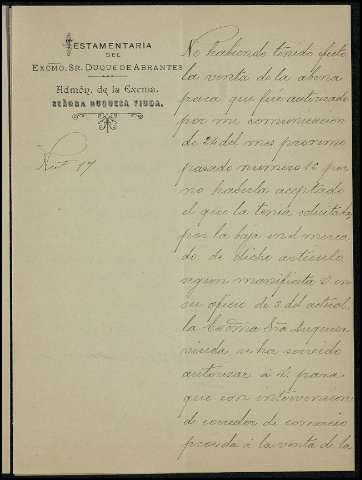 TESTAMENTARÍA
DEL
EXCMO. SR. DUQUE DE ABRANTES
Admón. de la Excma.
SEÑORA DUQUESA VIUDA.
Nº 17
No habiendo tenido efecto
la venta de la abena
paca que fué autorizado
por mi comunicacion
de 24 del mes proximo
pasado número 12 por
no haberla aceptado
el que la tenia solicitada
por la baja en el merca
do de dicho articulo
segun manifiesta V. en
su oficio de 3 del actual,
la Excma Sra Duquesa
viuda se ha servido
autorizar á V. para
que con intervencion
de corredor de comercio
proceda á la venta de la